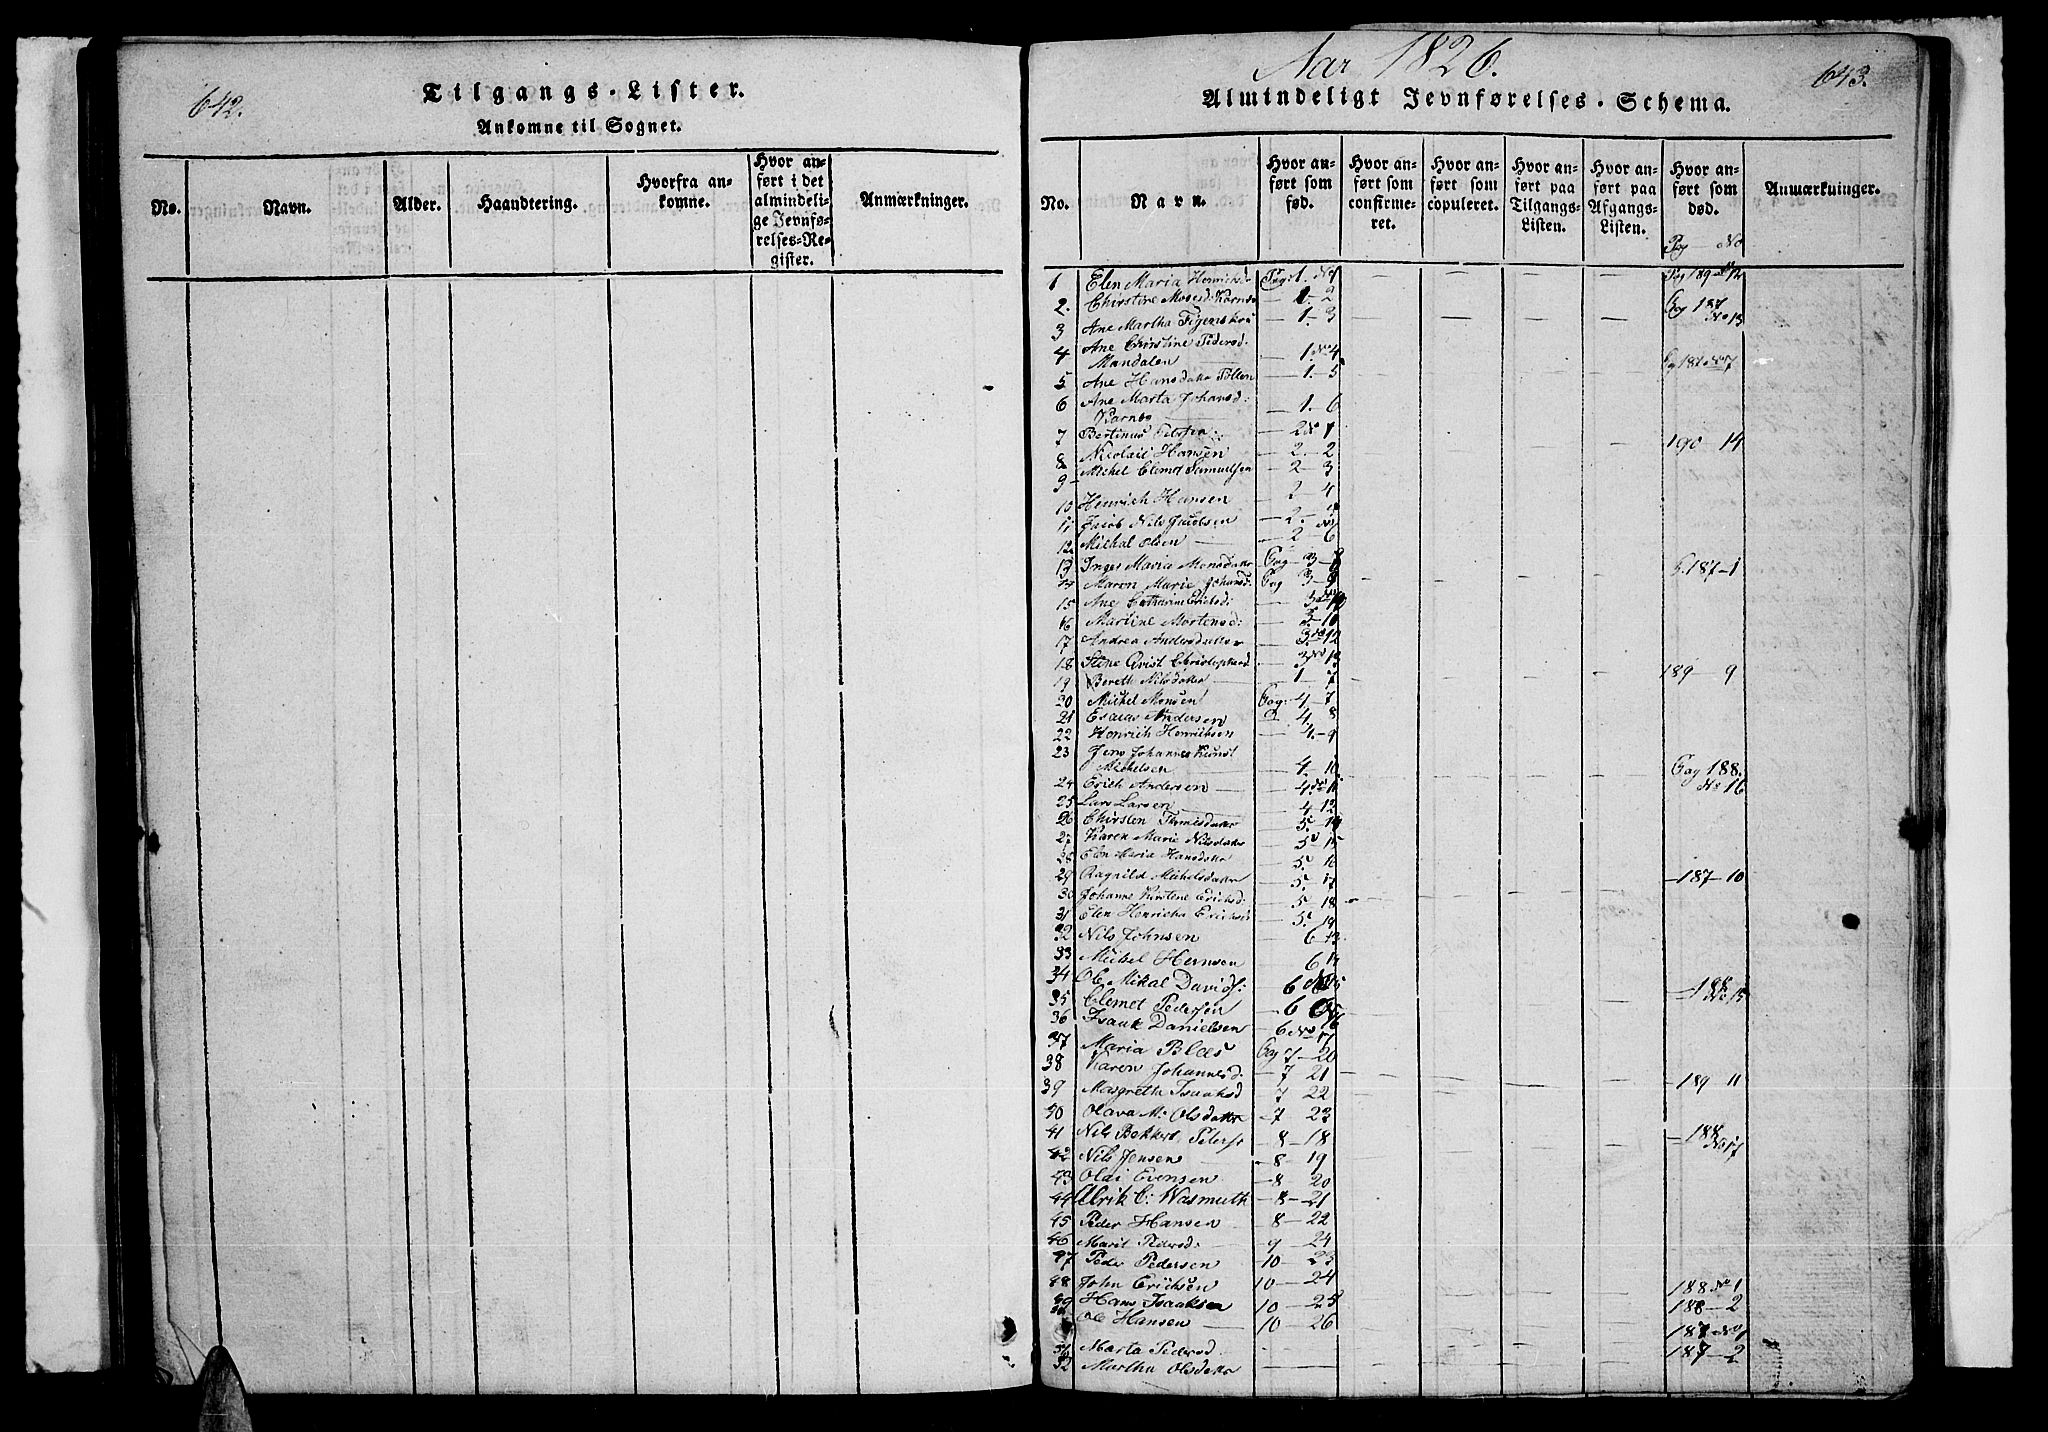 642.
Tilgangs-Lister.
Ankomne til Sognet.
No. Navn. Alder. Haandtering. Hvorfra ankomne. Hvor anført i det almindelige Jevnførelses-Register. Anmærkninger.
Aar 1826.
643.
Almindeligt Jevnførelses-Schema.
No. Navn. Hvor anført som fød. Hvor anført som confirmeret. Hvor anført som copuleret. Hvor anført paa Tilgangs-Listen. Hvor anført paa Afgangs-Listen. Hvor anført som død. Anmærkninger.
Pag No
1 Elen Maria Henriksd Pag: 1. No 1 Pag 189 No 12
2. Chirstine Mogesd: Karnes — 1 — 2 Pag 187 No 13
3 Ane Martha Figenskou — 1 — 3
4 Ane Chirstine Pedersd. Mandalen — 1 No 4 187 No 7
5 Ane Hansdatter — 1. — 5
6 Ane Marta Johansd: Karnes — 1. — 6
7 Bertinus — 2 No 1 190 — 14
8 Nicolaii Hansen — 2. — 2
9 Michel Clemet Samuelsen — 2 — 3
10 Henrich Hansen — 2 — 4
11 Jacob Nils Jacobsen — 2.
12 Michal Olsen — 2 — 6
13 Inger Maria Monsdatter Pag 3 — 8 P. 187 — 1
14 Maren Marie Johansd: Pag 3 — 9
15 Ane Catharine Ericksd: — 3
16 Martine Mortensd: — 3. — 10
17 Andrea Andersdatter — 3 No 12
18 Stine Qvist Christophersd — 3 No 13
19 Bereth Nilsdatter — 1 — 7 189 — 9
20 Michel Monsen Pag: 4. — 7
21 Esaias Andersen 4. 8
22 Henrich Henrichsen — 4. — 9
23 Jens Johannes
Michelsen — 4. — 10 Pag 188.
24 Erich Andersen — 4 No 11 No 16
25 Lars Larsen — 4 — 12
26 Chirsten — 5. — 14
27 Karen Marie Nilsdatter 5. 15
28 Elen Maria Hansdatter 5. 16
29 Ragnild Michelsdatter — 5. — 17 — 187 — 10
30 Johanne Kirstene Ericksd: — 5 — 18
31 Elen Henricha Ericksd — 5. — 19
32 Nils Johnsen — 6 — 13
33 Michel Hernsen 6 14
34 Ole Mikal Davids: 6 No 15 — 188
35 Clemet Pedersen — 6 No 15
36 Isaak Danielsen — 6 No
37 Maria Blaes Pag 7 — 20
38 Karen Johannesd. — 7 21
39 Margreth Isaaksd 7 22 — 189 11
40 Olava M: Olsdatter — 7 — 23
41 Nils Pederse — 8 — 18 — 188 No 17
42 Nils Jensen — 8 — 19
43 Olai Evensen — 8 20
44 Ulrik C: Wasmuth — 8 — 21
45 Peder Hansen — 8 — 22
46 Marit Pedersd: — 9 — 24
47 Peder Pedersen — 10 — 23
48 John Ericksen — 10 — 24 188 No 1
49 Hans Isaaksen — 10 — 25 188 — 2
50 Ole Hansen — 10 — 26 187 No 1
51 Marta Pedersd. 187 — 2
52 Martha Olsdatter